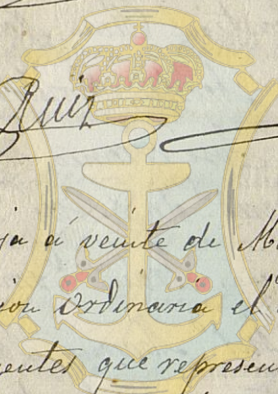 Ruiz
ja á veinte de M
ion ordinaria el
entes que represen